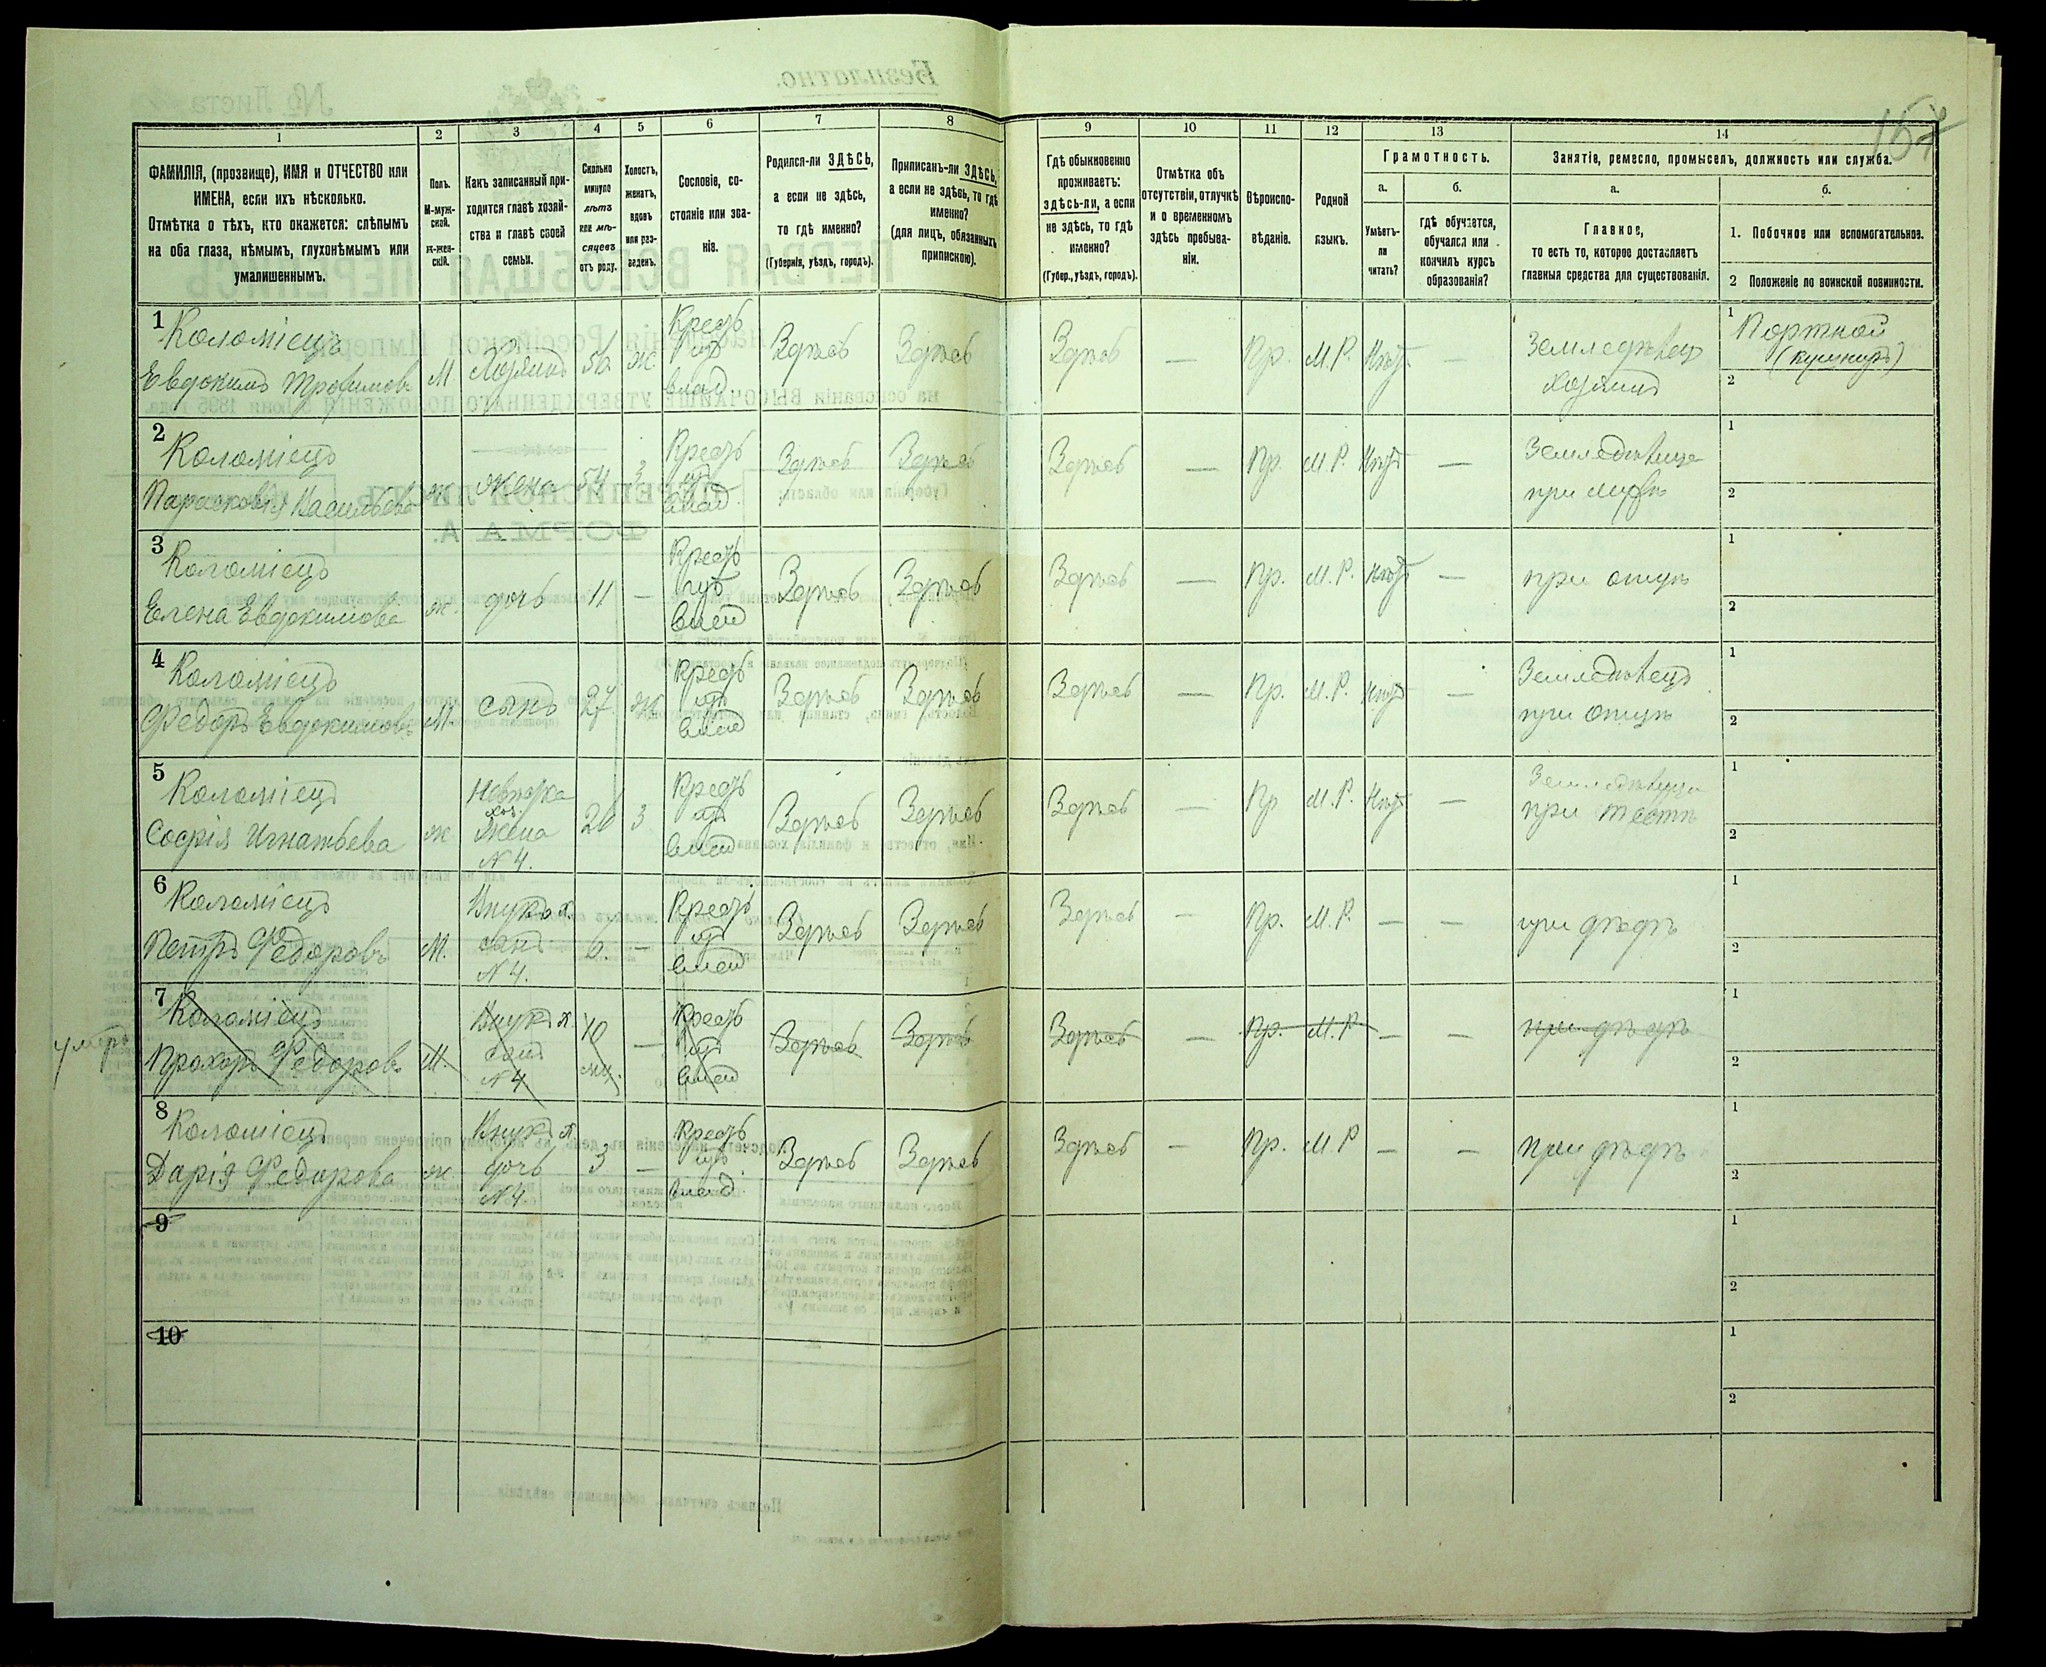 157
1 2 3 4 5 6 7 8 9 10 11 12 13 14
ФАМИЛІЯ, (прозвище), ИМЯ и ОТЧЕСТВО или
ИМЕНА, если ихъ нѣсколько.
Отмѣтка о тѣхъ, кто окажется: слѣпымъ
на оба глаза, нѣмымъ, глухонѣмымъ или
умалишеннымъ.
Полъ.
М-муж-
ской.
ж-жен-
скій.
Какъ записанный при-
ходится главѣ хозяй-
ства и главѣ своей
семьи.
Сколько
минуло
лѣтъ
или мѣ-
сяцевъ
отъ роду.
Холостъ,
женатъ,
вдовъ
или раз-
веденъ.
Сословіе, со-
стояніе или зва-
ніе.
Родился-ли ЗДѢСЬ,
а если не здѣсь,
то гдѣ именно?
(Губернія, уѣздъ, городъ).
Приписанъ-ли ЗДѢСЬ,
а если не здѣсь, то гдѣ
именно?
(для лицъ, обязанныхъ
припискою).
Гдѣ обыкновенно
проживаетъ:
здѣсь-ли, а если
не здѣсь, то гдѣ
именно?
(Губер., уѣздъ, городъ).
Отмѣтка объ
отсутствіи, отлучкѣ
и о временномъ
здѣсь пребыва-
ніи.
Вѣроиспо-
вѣданіе.
Родной
языкъ.
Грамотность.
а.
Умѣетъ-
ли
читать?
б.
Гдѣ обучается,
обучался или
кончилъ курсъ
образованія?
Занятіе, ремесло, промыселъ, должность или служба.
а.
Главное,
то есть то, которое доставляетъ
главныя средства для существованія.
б.
1. Побочное или вспомогательное.
2 Положеніе по воинской повинности.
1 Коломіецъ
Евдокимъ Трофимовъ М. Хозяинъ 50 ж. Крестъ
влад Здѣсь Здѣсь Здѣсь — Пр. М.Р. Нѣтъ — Земледѣлецъ
хозяинъ
1 Портной
(кушниръ)
2
2 Коломіецъ
Парасковія Васильева ж жена 54 З Крестъ
влад Здѣсь Здѣсь Здѣсь — Пр. М.Р. Нѣтъ — Земледѣлица
при мужѣ
1
2
3 Коломіецъ
Елена Евдокимова ж. дочь 11 — Крестъ
влад Здѣсь Здѣсь Здѣсь — Пр. М.Р. Нѣтъ — при отцѣ
1
2
4 Коломіецъ
Федоръ Евдокимовъ М. сынъ 27 ж Крестъ
влад Здѣсь Здѣсь Здѣсь — Пр. М.Р. Нѣтъ — Земледѣлецъ
при отцѣ
1
2
5 Коломіецъ
Софія Игнатьева ж Невѣстка
хоз.
Жена
N 4. 26 З Крестъ
влад Здѣсь Здѣсь Здѣсь — Пр М.Р. Нѣтъ — Земледѣлица
при тестѣ
1
2
6 Коломіецъ
Петръ Федоровъ М. Внукъ х.
сынъ
N 4. 6. — Крестъ
влад Здѣсь Здѣсь Здѣсь — Пр. М.Р. — — при дѣдѣ
1
2
умеръ
7 Коломіецъ
Прохоръ Федоровъ М. Внукъ х.
сынъ
N 4 10
мц. — Крестъ
влад Здѣсь Здѣсь Здѣсь — Пр. М.Р. — — при дѣдѣ
1
2
8 Коломіецъ
Дарія Федорова ж. Внука х
дочь
N 4 3 — Крестъ
влад. Здѣсь Здѣсь Здѣсь — Пр. М.Р — — при дѣдѣ
1
2
9
1
2
10
1
2